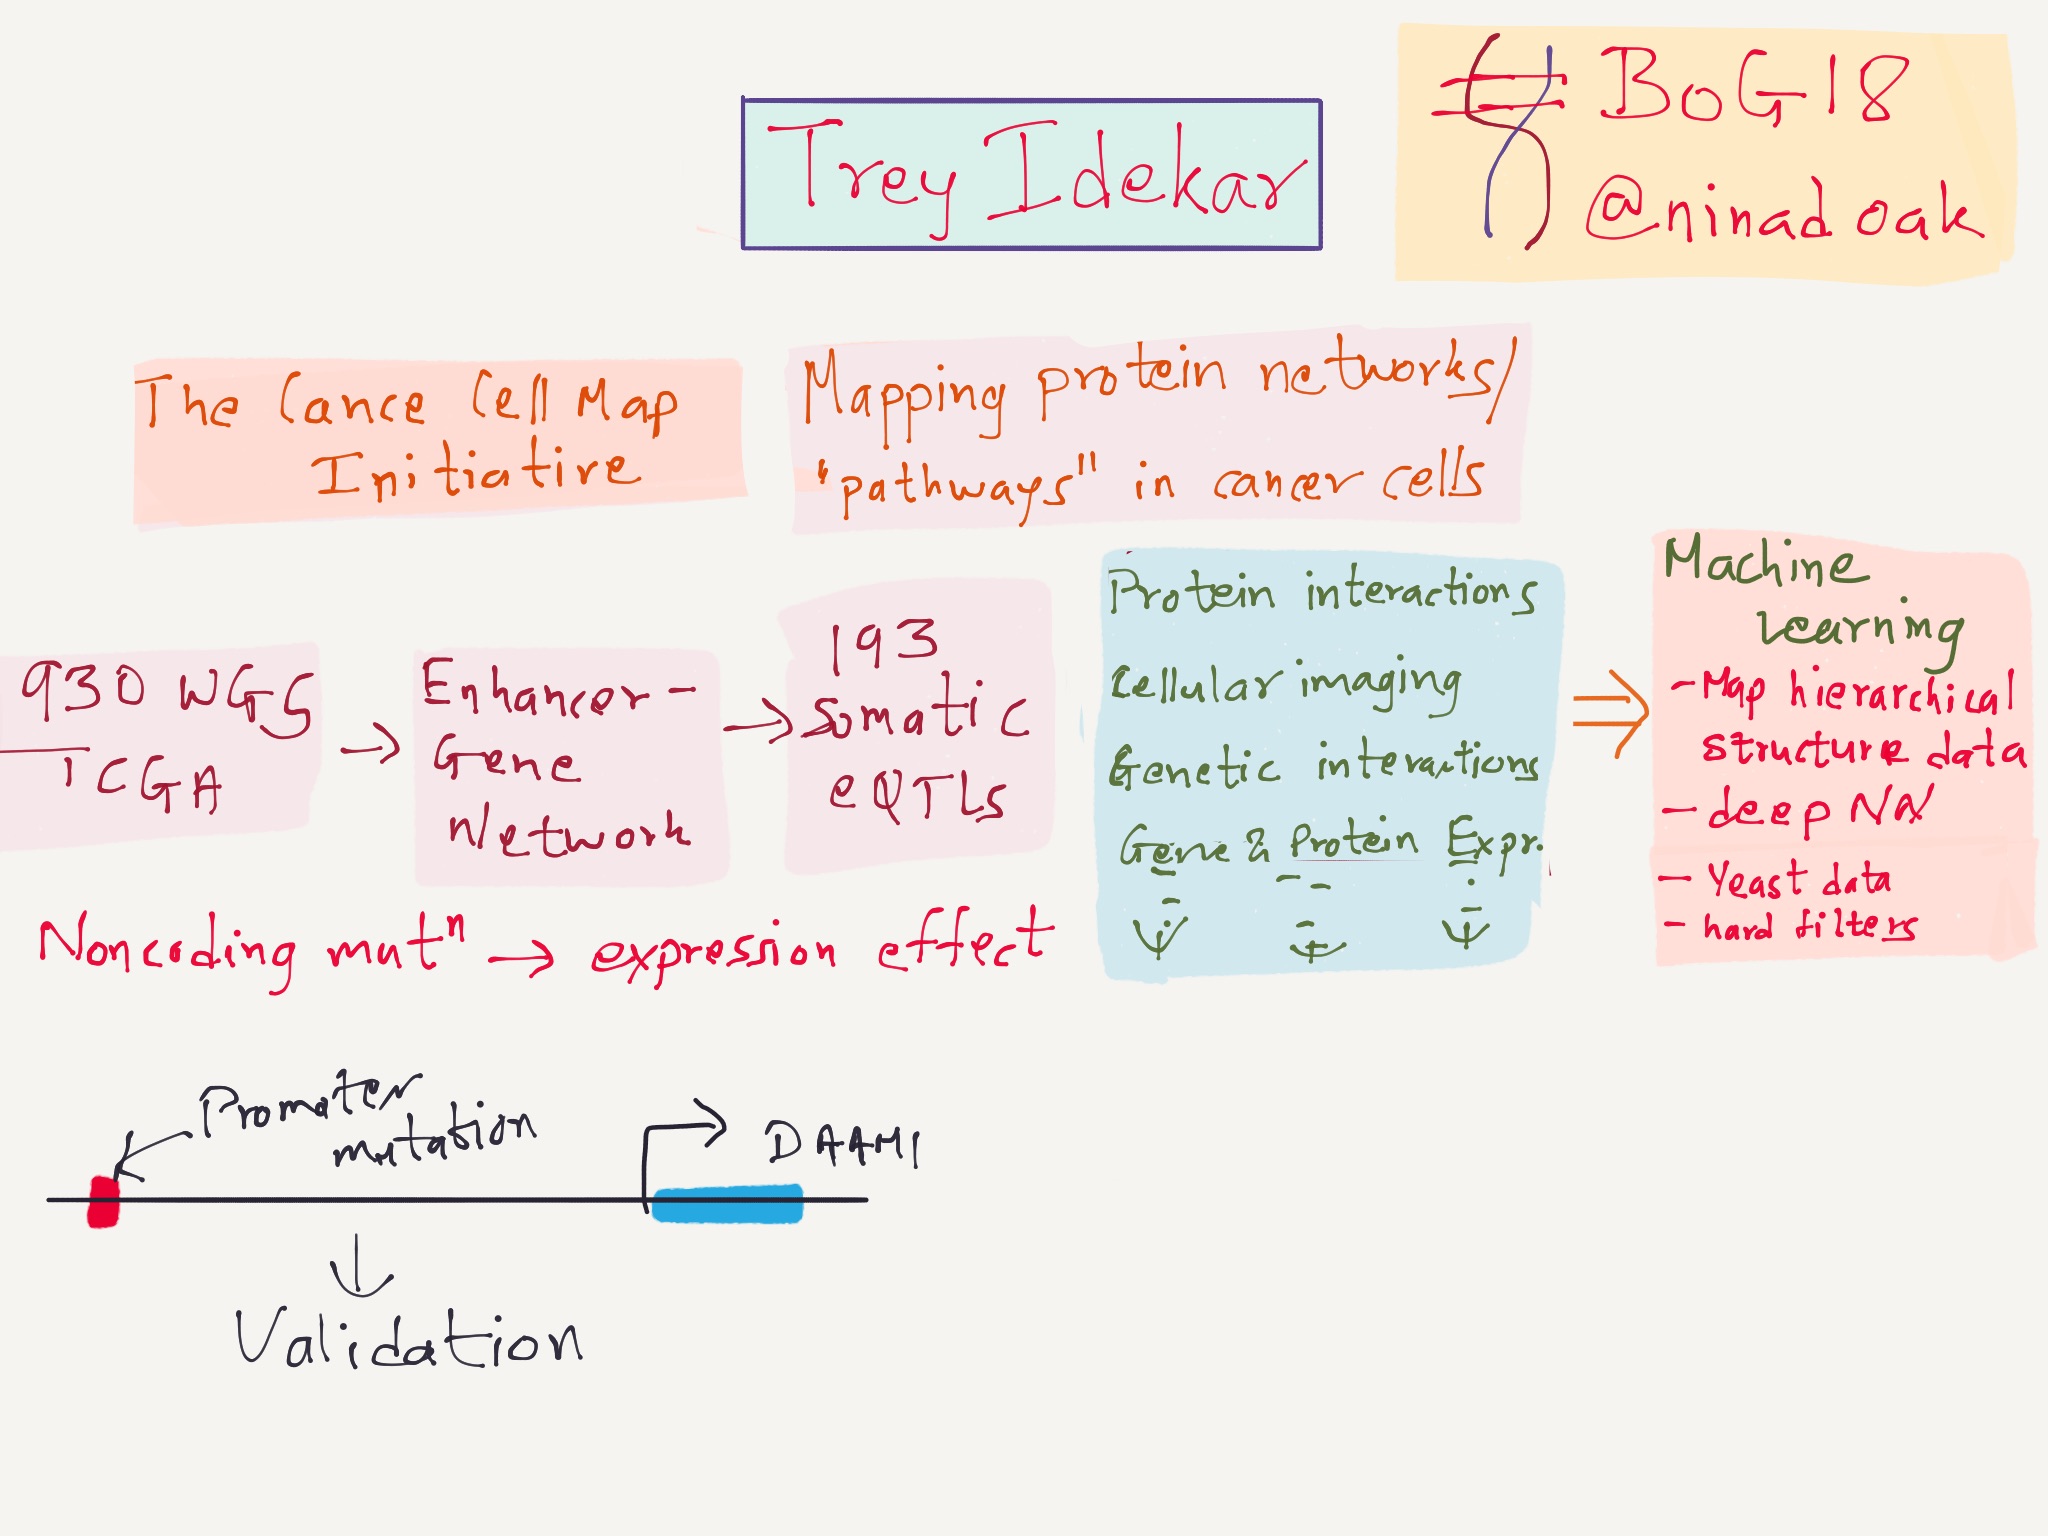 Trey Idekar
# BoG18
@ninadoak
The Cance Cell Map
Initiative
Mapping protein networks/
"pathways" in cancer cells
930 WGS
TCGA
→
Enhancer-
Gene
Network
→
193
somatic
eQTLs
Noncoding mutⁿ → expression effect
Protein interactions
Cellular imaging
Genetic interactions
Gene & Protein Expr.
⇒
Machine
Learning
- Map hierarchical
structure data
- deep NN
- Yeast data
- hard filters
Promoter
mutation
DAAM1
Validation